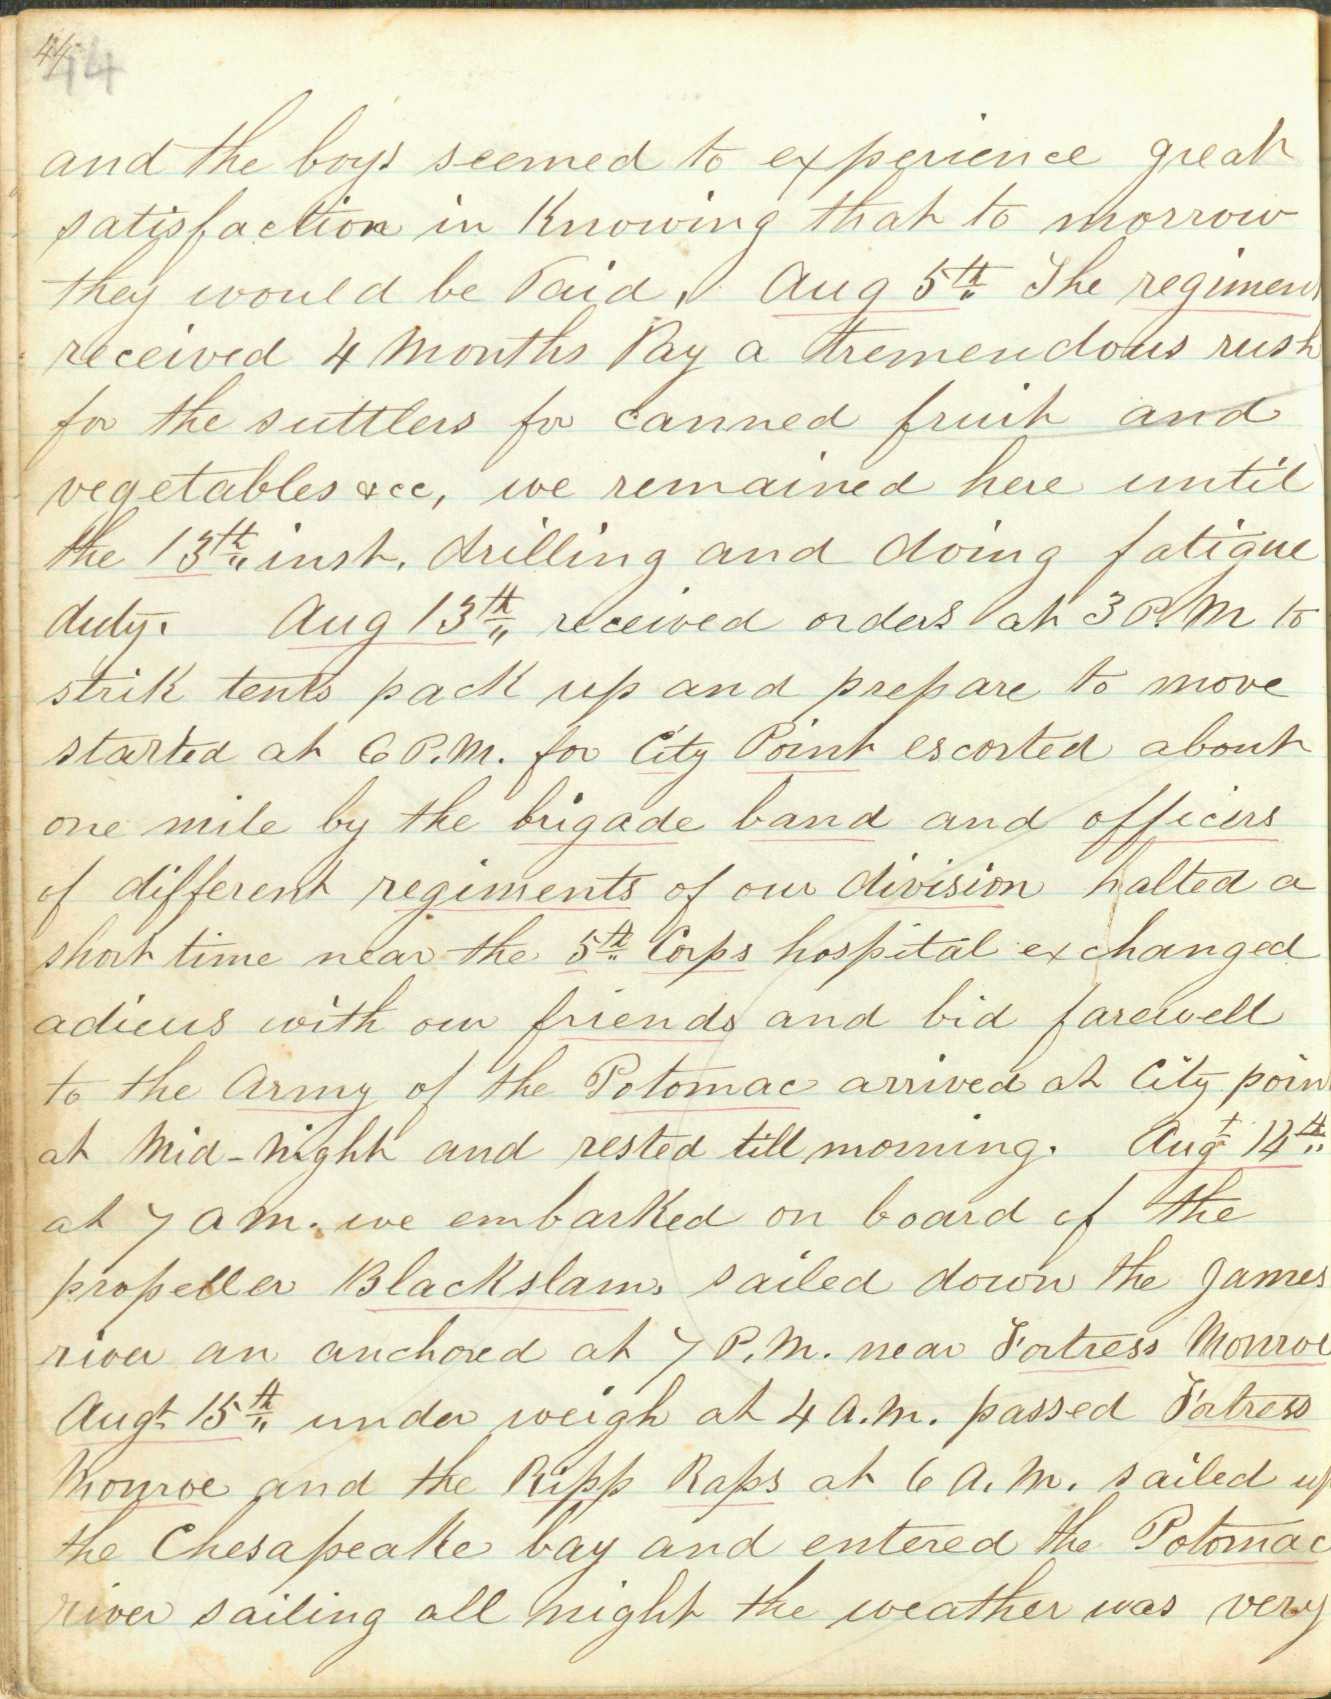 44
44
and the boys seemed to experience great
satisfaction in Knowing that to morrow
they would be Paid. Aug 5th The regiment
received 4 Months Pay a tremendous rush
for the suttlers for canned fruit and
vegetables &cc, we remained here until
the 13th inst. drilling and doing fatigue
duty. Aug 13th received orders at 3 P.M to
strik tents pack up and prepare to move
started at 6 P.M. for City Point escorted about
one mile by the brigade band and officirs
of different regiments of our division halted a
short time near the 5th Corps hospital exchanged
adieus with our friends and bid farewell
to the Army of the Potomac arrived at City point
at Mid-Night and rested till morning. Augt 14th
at 7 a m. we embarked on board of the
propeller Blackslam, sailed down the James
river an anchored at 7 P.M. near Fortress Monroe
Augt 15th under weigh at 4 A.M. passed Fortress
Monroe and the Ripp Raps at 6 A.M. sailed up
the Chesapeake bay and entered the Potomac
river sailing all night the weather was very